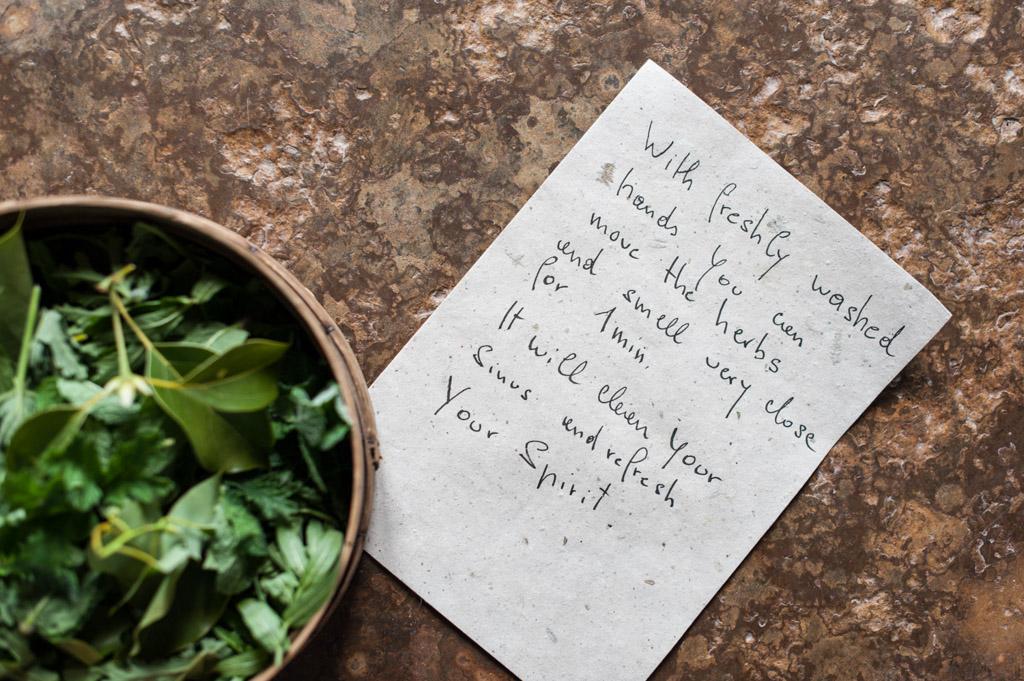 With freshly washed
hands you can
move the herbs
and smell very close
for 1min.
It will clean Your
Sinus and refresh
Your Spirit